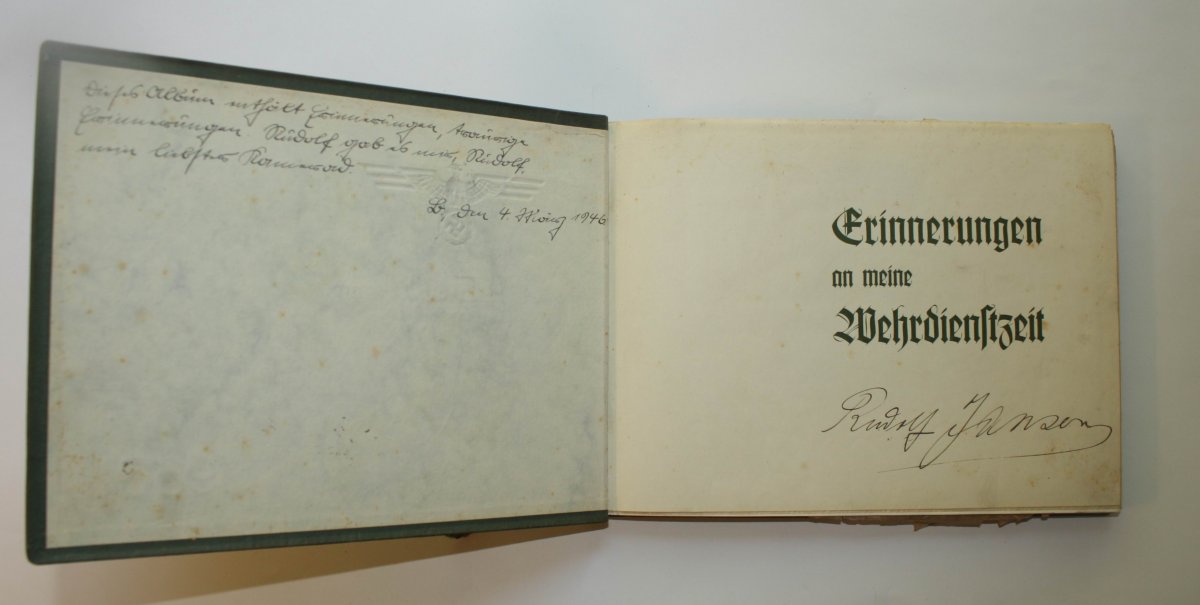 Dieses Album enthält Erinnerungen, traurige
Erinnerungen. Rudolf gab es mir, Rudolf,
mein liebster Kamerad.
B, den 4. März 1946
Erinnerungen
an meine
Wehrdienstzeit
Rudolf Jansen